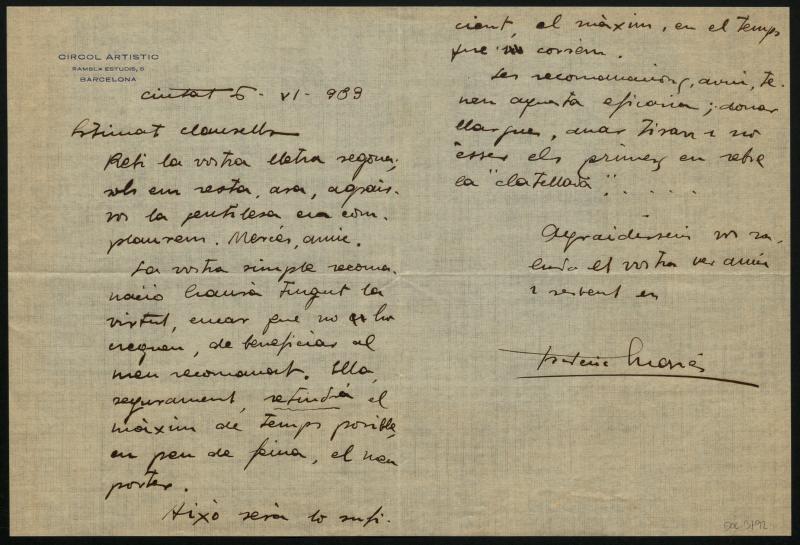 CIRCOL ARTISTIC
RAMBLA ESTUDIS, 6
BARCELONA
Ciutat 6 - VI - 933
Estimat Clausells
Rebi la vostra lletra segona;
sols em resta, ara, agrair-
vos la gentilesa en com-
plaurem. Mercès, amic.
La vostra simple recoma-
nació haurà tingut la
virtut, encar que no ho
cregueu, de beneficiar al
meu recomanat. Ella,
segurament, retindrà el
màxim de temps posible,
en peu de feina, el meu
porter.
Aixó serà lo sufi-
cient, el màxim, en el temps
que corrém.
Les recomanacions, avui, te-
nen aquesta eficacia; donar
llargues, anar tirant i no
ésser els primers en rebre
la "clatellada". . . . .
Agraidissim vos sa-
luda el vostre ver amic
i servent en
Frederic Marés